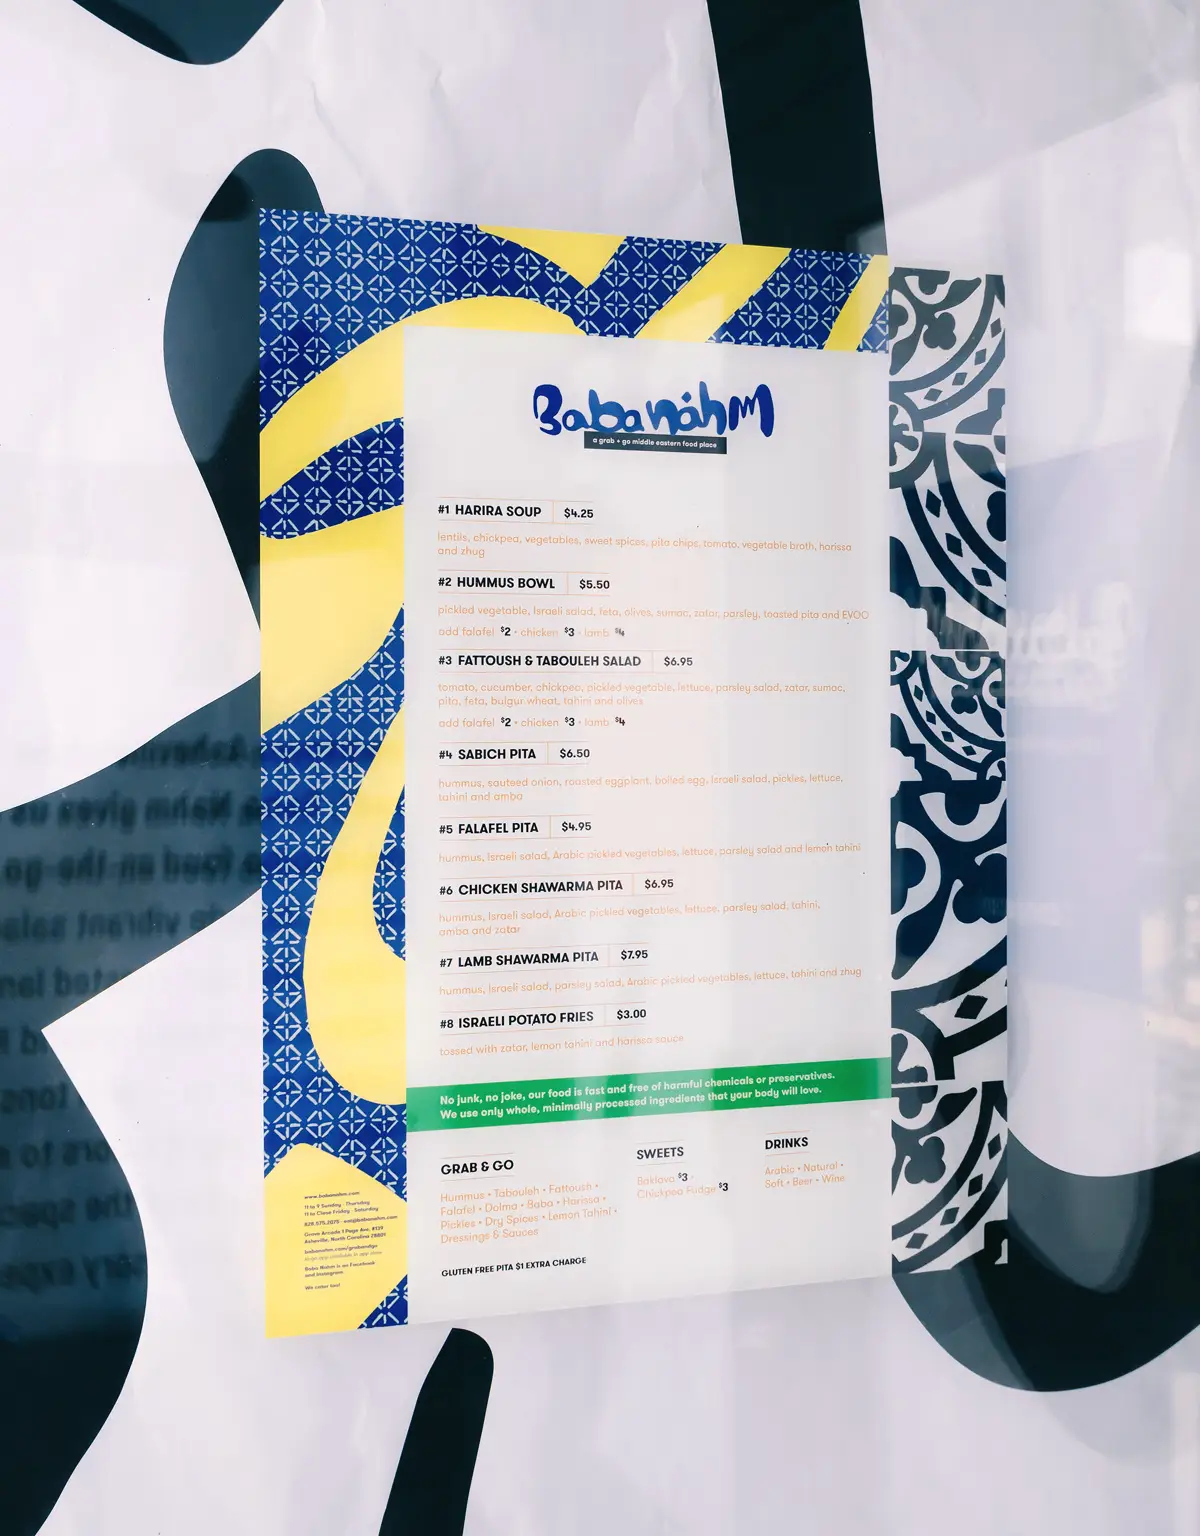 Babanáhm
a grab + go middle eastern food place
#1 HARIRA SOUP $4.25
lentils, chickpea, vegetables, sweet spices, pita chips, tomato, vegetable broth, harissa
and zhug
#2 HUMMUS BOWL $5.50
pickled vegetable, Israeli salad, feta, olives, sumac, zatar, parsley, toasted pita and EVOO
add falafel $2 · chicken $3 · lamb $4
#3 FATTOUSH & TABOULEH SALAD $6.95
tomato, cucumber, chickpea, pickled vegetable, lettuce, parsley salad, zatar, sumac,
pita, feta, bulgur wheat, tahini and olives
add falafel $2 · chicken $3 · lamb $4
#4 SABICH PITA $6.50
hummus, sauteed onion, roasted eggplant, boiled egg, Israeli salad, pickles, lettuce,
tahini and amba
#5 FALAFEL PITA $4.95
hummus, Israeli salad, Arabic pickled vegetables, lettuce, parsley salad and lemon tahini
#6 CHICKEN SHAWARMA PITA $6.95
hummus, Israeli salad, Arabic pickled vegetables, lettuce, parsley salad, tahini,
amba and zatar
#7 LAMB SHAWARMA PITA $7.95
hummus, Israeli salad, parsley salad, Arabic pickled vegetables, lettuce, tahini and zhug
#8 ISRAELI POTATO FRIES $3.00
tossed with zatar, lemon tahini and harissa sauce
No junk, no joke, our food is fast and free of harmful chemicals or preservatives.
We use only whole, minimally processed ingredients that your body will love.
GRAB & GO
Hummus • Tabouleh • Fattoush •
Falafel • Dolma • Baba • Harissa •
Pickles • Dry Spices • Lemon Tahini •
Dressings & Sauces
SWEETS
Baklava $3 ·
Chickpea Fudge $3
DRINKS
Arabic • Natural •
Soft • Beer • Wine
GLUTEN FREE PITA $1 EXTRA CHARGE
www.babanahm.com
11 to 9 Sunday - Thursday
11 to Close Friday - Saturday
828.575.2075 · eat@babanahm.com
Grove Arcade 1 Page Ave. #139
Asheville, North Carolina 28801
babanahm.com/grabandgo
Baba Nahm is on Facebook
and Instagram
We cater too!
Ashevill
Nahm gives us
food on the go
vibrant sala